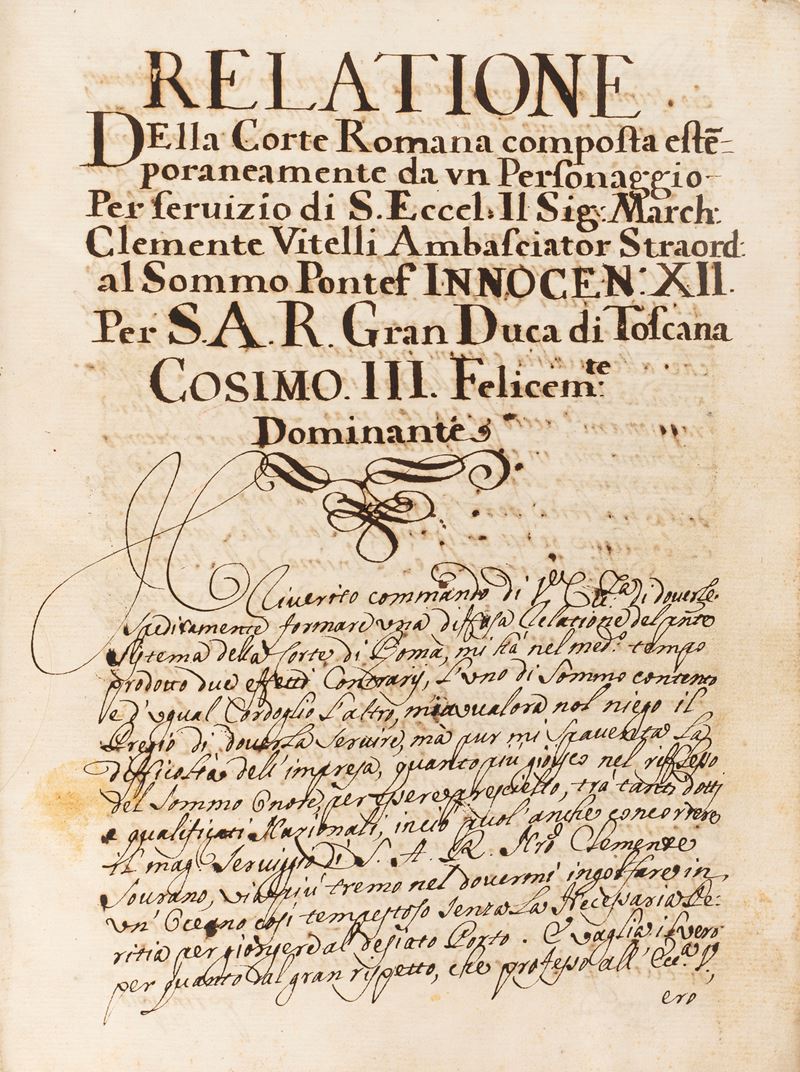 RELATIONE
DElla Corte Romana composta estē=
poraneamente da vn Personaggio
Per seruizio di S. Eccel: Il Sig: March:
Clemente Vitelli Ambasciator Straord:
al Sommo Pontef INNOCEN: XII.
Per S. A. R. Gran Duca di Toscana
COSIMO. III. Felicem:te
Dominante
Il Riverito commando di V. Ecc.za di doverle
speditamente formare una diffusa Relatione del pnte
sistema della Corte di Roma, mi hà nel med.o tempo
prodotto due effetti Contrarij, l'uno di Sommo contento
e d'ugual Cordoglio l'altro, mi avvalora nol niego il
Pregio di doverla Servire, mà pur mi spaventa La
difficoltà dell'impresa, quanto più gioisco nel riflesso
del Sommo Onore, per essere prescielto, trà tanti dotti
e qualificati Nazionali, in ciò puol' anche concorrere
il mag. Servizio di S. A. R. Nro Clemente
Sovrano, via più tremo nel dovermi ingolfare in
un' Oceano così tempestoso senza La Necessaria Pe:
ritia per giongere al desiato Porto. E vaglia il vero
per quanto dal gran rispetto, che professo all' Ecc.a V.,
ero